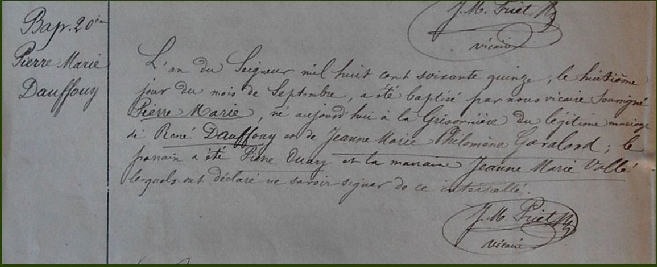 J. M. Piet
vicaire
Bap. 20e
Pierre Marie
Dauffouy
L'an du Seigneur mil huit cent soixante quinze, le huitième
jour du mois de Septembre, a été baptisé par nous vicaire soussigné
Pierre Marie, né aujourd'hui à la du légitime mariage
de René Dauffouy et de Jeanne Marie Philomène; le
parrain a été Pierre et la marraine Jeanne Marie Vallé
lesquels ont déclaré ne savoir signer de ce interpellé.
J. M. Piet
vicaire